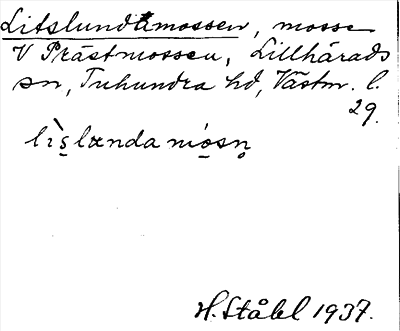 Litslundamossen, mosse
V Prästmossen, Lillhärads
sn, Tuhundra hd, Västm. l.
29.
lìslunda mosn̥
H. Ståhl 1937.